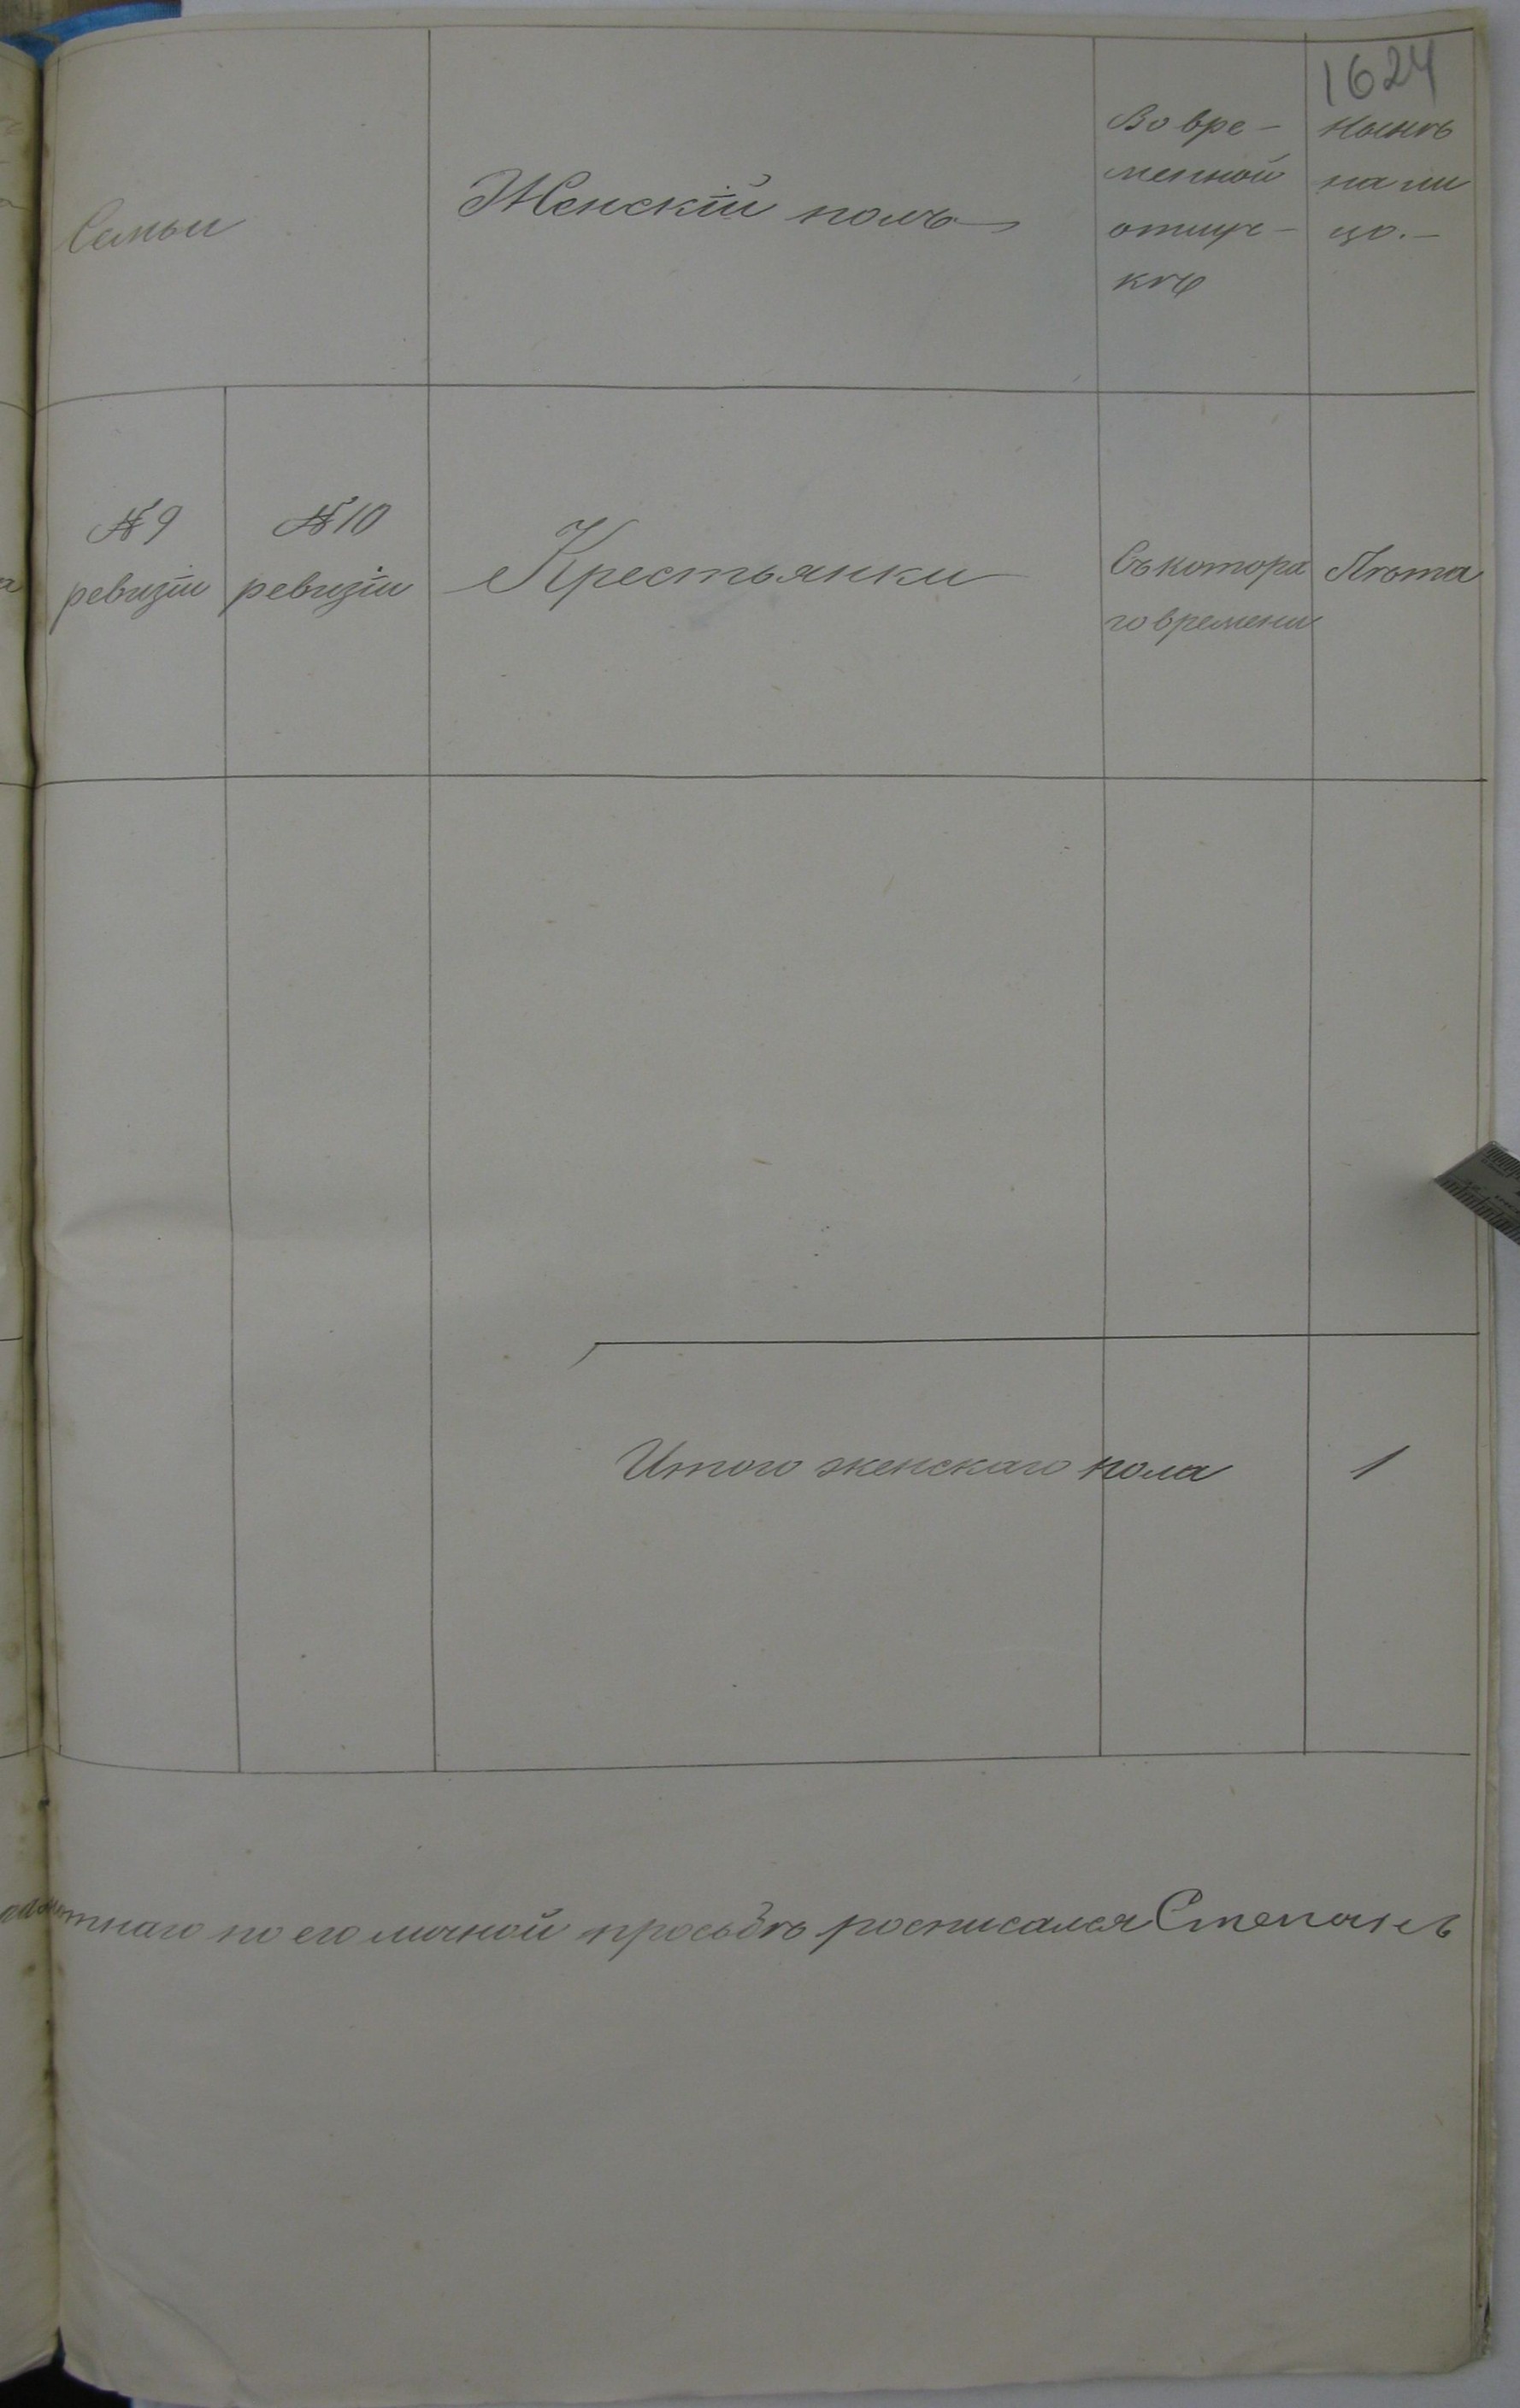 1624
Семьи
Женскій полъ
Во вре-
менной
отлуч-
кѣ
Нынѣ
на ли
цо.-
№ 9
ревизіи
№ 10
ревизіи
Крестьянки
Съ котора
го времени
Лѣта
Итого женскаго пола 1
по его личной просьбѣ росписался Степанъ